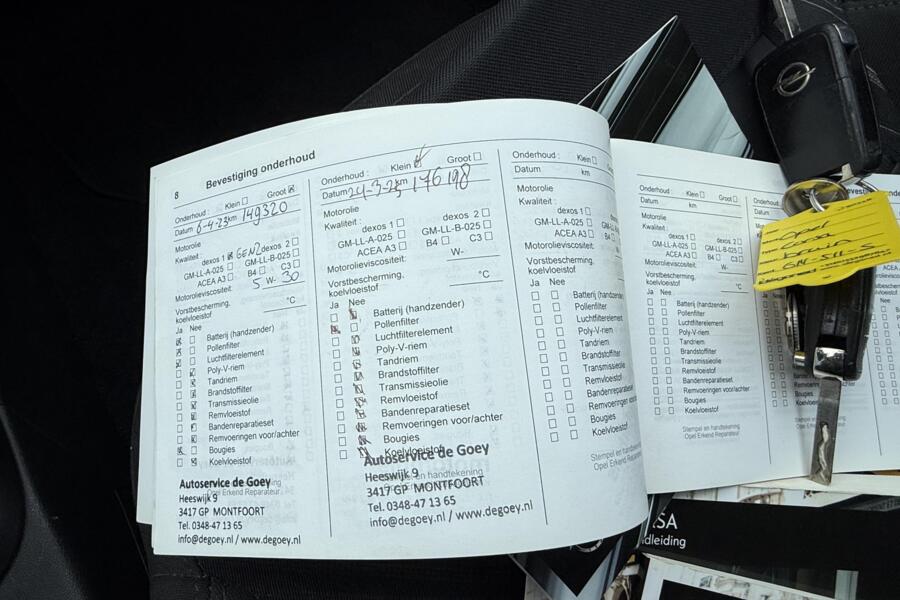 8 Bevestiging onderhoud
Onderhoud : Klein Groot
Datum 6-4-23 km 149320
Motorolie
Kwaliteit : dexos 1 GEN2 dexos 2
GM-LL-A-025 GM-LL-B-025
ACEA A3 B4 C3
Motorolieviscositeit: 5 W- 30
Vorstbescherming,
koelvloeistof °C
Ja Nee
Batterij (handzender)
Pollenfilter
Luchtfilterelement
Poly-V-riem
Tandriem
Brandstoffilter
Transmissieolie
Remvloeistof
Bandenreparatieset
Remvoeringen voor/achter
Bougies
Koelvloeistof
Autoservice de Goey
Opel Erkend Reparateur
Heeswijk 9
3417 GP MONTFOORT
Tel. 0348-47 13 65
info@degoey.nl / www.degoey.nl
Onderhoud : Klein Groot
Datum 24-3-25 km 176 198
Motorolie
Kwaliteit :
dexos 1 dexos 2
GM-LL-A-025 GM-LL-B-025
ACEA A3 B4 C3
Motorolieviscositeit: W-
Vorstbescherming,
koelvloeistof °C
Ja Nee
Batterij (handzender)
Pollenfilter
Luchtfilterelement
Poly-V-riem
Tandriem
Brandstoffilter
Transmissieolie
Remvloeistof
Bandenreparatieset
Remvoeringen voor/achter
Bougies
Koelvloeistof
Autoservice de Goey
Heeswijk 9
3417 GP MONTFOORT
Tel. 0348-47 13 65
info@degoey.nl / www.degoey.nl
Onderhoud : Klein
Datum km
Motorolie
Kwaliteit :
dexos 1
GM-LL-A-025
ACEA A3
Motorolieviscositeit:
Vorstbescherming,
koelvloeistof
Ja Nee
Batterij (handzender)
Pollenfilter
Luchtfilterelement
Poly-V-riem
Tandriem
Brandstoffilter
Remvloeistof
Bandenreparatieset
Remvoeringen
Bougies
Koelvloeistof
Stempel en
Opel Erkend
Onderhoud : Klein Groot
Datum km
Motorolie
Kwaliteit :
dexos 1 dexos 2
GM-LL-A-025 GM-LL-B-025
ACEA A3 B4 C3
Motorolieviscositeit: W-
Vorstbescherming,
koelvloeistof °C
Ja Nee
Batterij (handzender)
Pollenfilter
Luchtfilterelement
Poly-V-riem
Tandriem
Brandstoffilter
Transmissieolie
Remvloeistof
Bandenreparatieset
Remvoeringen voor/achter
Bougies
Koelvloeistof
Stempel en handtekening
Opel Erkend Reparateur
Opel
Corsa